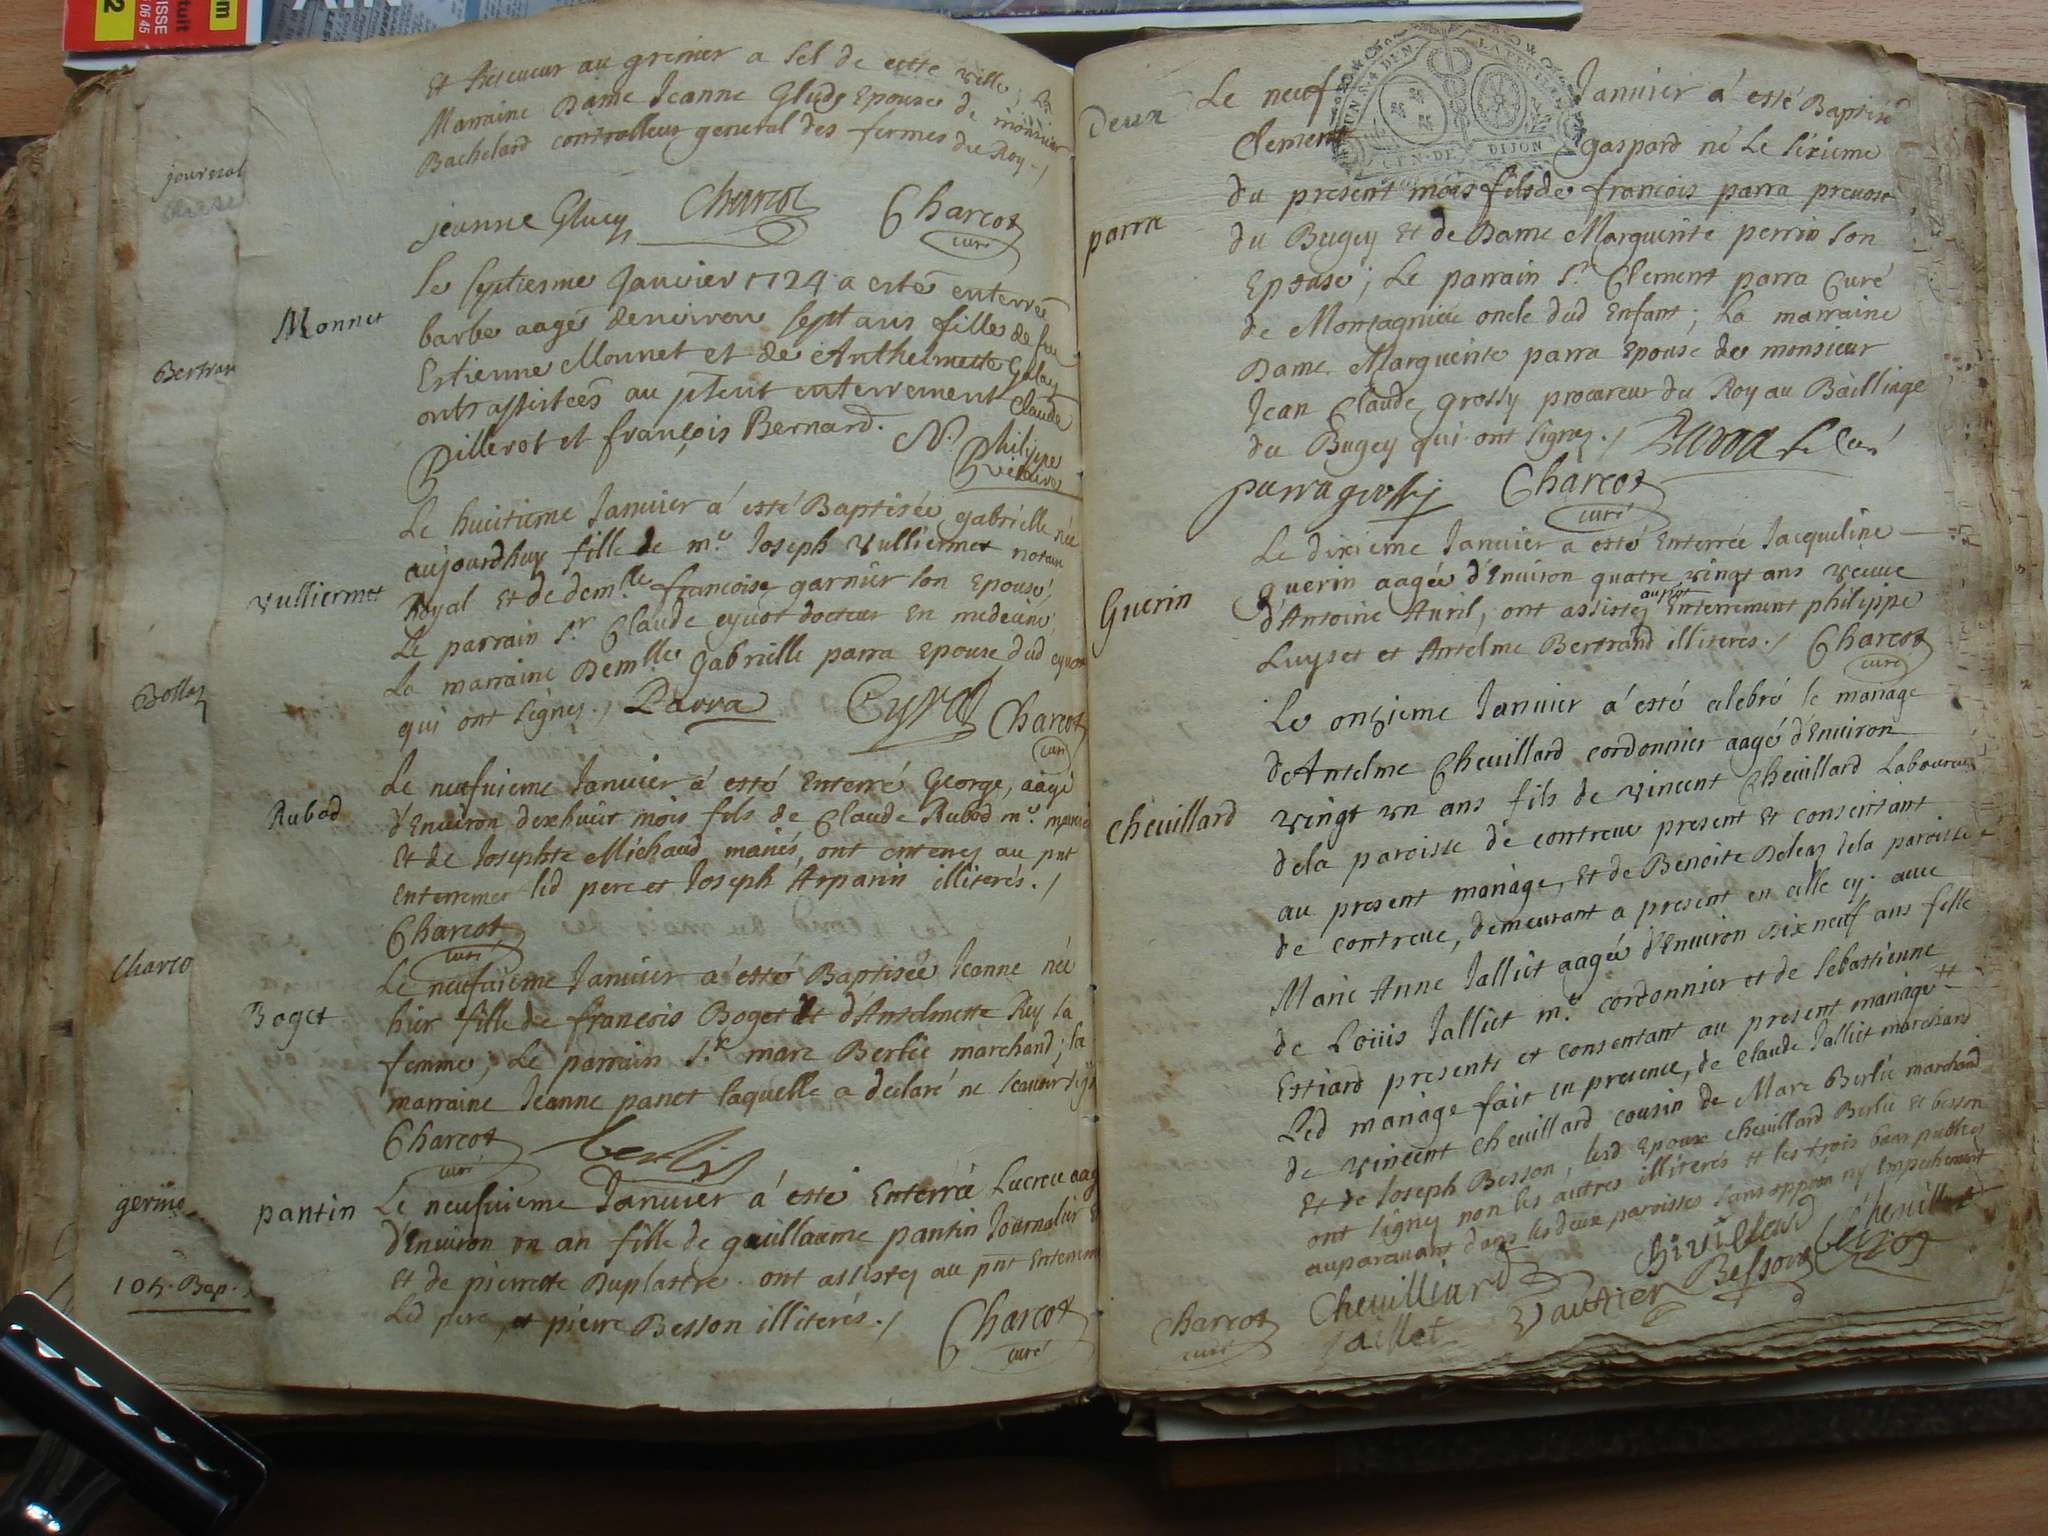 AIN
journal
Bertran
Bollaz
Charco
germe
105. Bap.
et Receueur au grenier a sel de cette ville, La
Marraine Dame Jeanne Gludy Epouse de monsieur
Bachelard controlleur general des fermes du Roy./
jeanne Glucy Charcot Charcot
curé
Monnet
Le septiesme Janvier 1724 a esté enterrée
barbe aagée denviron sept ans fille de feu
Estienne Monnet et de Anthelmette Galay
ont assistées au pñt enterrement Claude
Billerot et françois Bernard. N. Philippe
Vicaire
Vulliermet
Le huitieme Januier á esté Baptisée gabrielle née
aujourdhuy fille de me. Joseph Vulliermet notaire
Royal et de demlle. francoise garnier son Epouse,
Le parrain Sr. Claude eyuot docteur en medecine,
La marraine Demlle gabrielle parra Epouse dud eyuot
qui ont signez./ Parra Charcot
curé
Rubod
Le neufuieme Januier á esté Enterré George, aagé
d'Enuiron dexhuit mois fils de Claude Rubod me.
et de Josephte Michaud mariés, ont entenez au pnt
enterremet led pere et Joseph Arparin illiterés./
Charcot
curé
Boget
Le neufuieme Januier á esté Baptisée Jeanne née
hier fille de francois Boget et d'Antelmette Rey sa
femme, Le parrain Sr. marc Berlie marchand; la
marraine Jeanne panet laquelle a declaré ne scauoir sign
Charcot berlie
curé
pantin
Le neufuieme Januier á esté Enterrée Lucrece aag
d'Enuiron vn an fille de guillaume pantin Journalier
et de pierrette Duplastre. ont assistez au pnt Enterrem
Led pere, et pierre Besson illiterés./ Charcot
curé
Deux
GEN. DE DIJON
Le neuf Januier á esté Baptisé
Clement gaspard né Le sixieme
parra
du present mois fils de francois parra preuost
du Bugey et de Dame Marguerite perrin son
Epouse; Le parrain Sr. Clement parra Curé
de Montagnieu oncle dud Enfant; La marraine
Dame Marguerite parra Epouse de monsieur
Jean Claude grossy procureur du Roy au Bailliage
du Bugey qui ont signez./ Parra
parra grossy Charcot
curé
Guerin
Le dixieme Januier a esté Enterrée Jacqueline
guerin aagée d'Enuiron quatre vingt ans veuue
d'Antoine Auril, ont assistez au pnt Enterrement philippe
Luyset et Antelme Bertrand illiterés./ Charcot
curé
Cheuillard
Le onzieme Januier á esté celebré le mariage
de Antelme Cheuillard cordonnier aagé d'Enuiron
vingt vn ans fils de vincent Cheuillard Laboureur
de la paroisse de contreue present et consentant
au present mariage, et de Benoite Deleaz de la paroisse
de contreue, demeurant a present en cette cy. auec
Marie Anne Jalliet aagée d'Enuiron dix neuf ans fille
de Loüis Jalliet me. cordonnier et de Sebastienne
Estiard presents et consentant au present mariage
Led mariage fait en presence, de Claude Jalliet marchand
de vincent Cheuillard cousin de Marc Berlie marchand
et de Joseph Besson, lesd Epoux cheuillard Berlie et besson
ont signez non les autres illiterés et les trois bans publiez
auparauant dans les deux paroisses sans opposn ny Empechement
Charcot Cheuilliard Chivilliard Cheuillard
curé Jaillet Vautrier Besson berlie